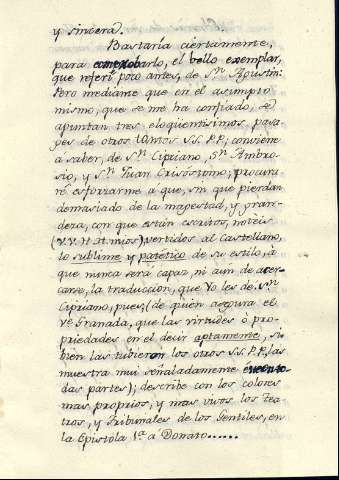 y sincera).
Bastaría ciertamente,
para comprobarlo, el bello exemplar,
que referí poco antes, de Sn. Agustin:
Pero mediante que en el asumpto
mismo, que se me ha confiado, se
apuntan tres eloquentisimos pasa-
ges de otros tantos S.S. P.P., conviene
a saber, de Sn. Cipriano, Sn. Ambro-
sio, y Sn. Juan Crisóstomo; procura-
ré esforzarme a que, sin que pierdan
demasiado de la magestad, y gran-
deza, con que están escritos, notéis
(V.V. H.H. mios) vertidos al Castellano,
lo sublime y patético de su estilo, à
que nunca será capaz, ni aun de acer-
carse, la traducción, que Yo les de. Sn.
Cipriano, pues, (de quien asegura el
Ve. Granada, que las virtudes ò pro-
piedades en el decir aptamente, si
bien las tubieron los otros S.S. P.P., las
muestra mui señaladamente en to-
das partes); describe con los colores
mas proprios, y mas vivos los Tea-
tros, y Tribunales de los Gentiles, en
la Epistola 1ª a Donato......